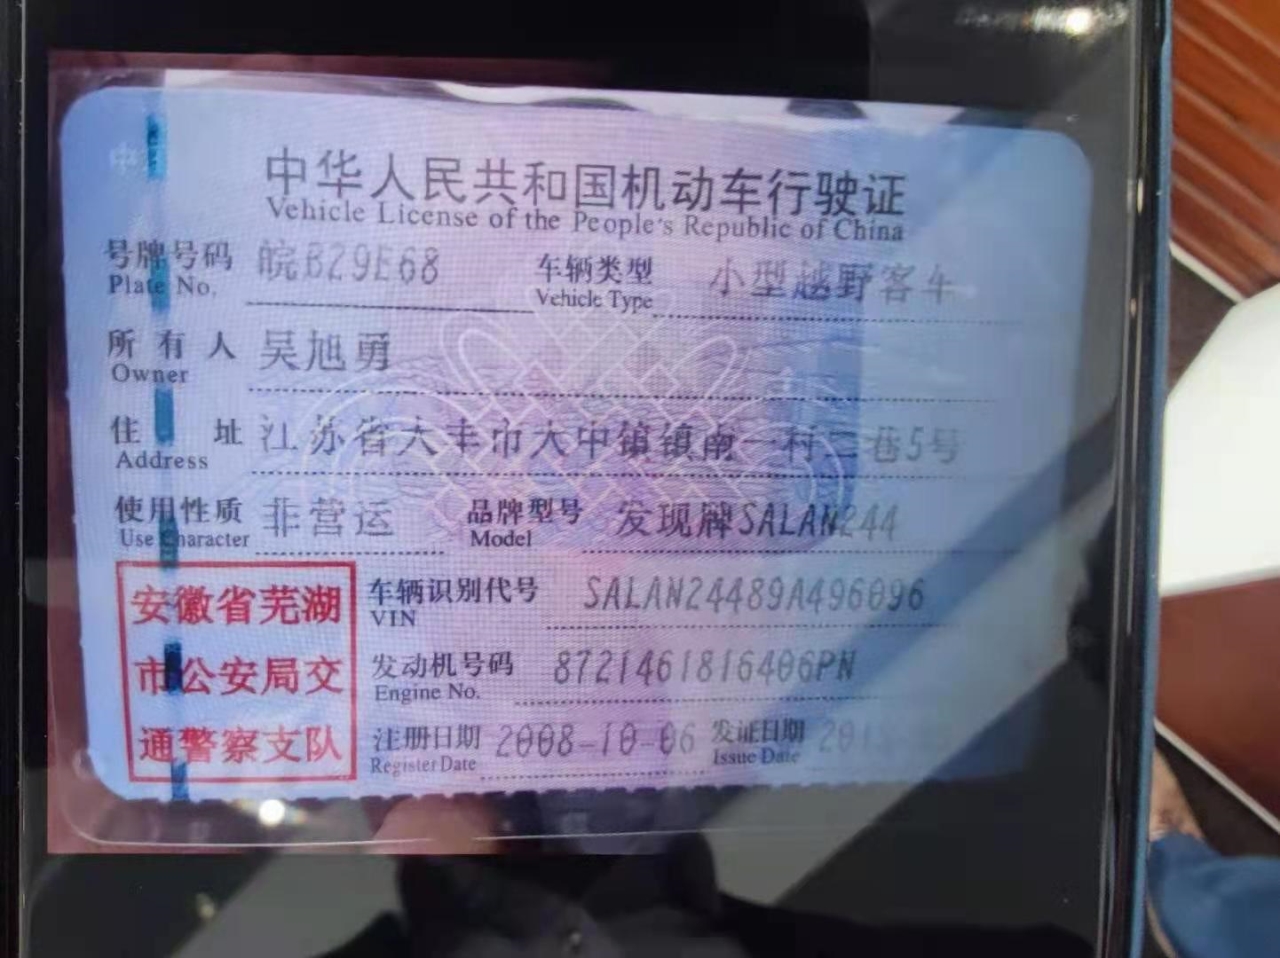 中华人民共和国机动车行驶证
Vehicle License of the People's Republic of China
号牌号码 皖B29E68 车辆类型 小型越野客车
Plate No. Vehicle Type
所有人 吴旭勇
Owner
住址 江苏省大丰市大中镇镇南一村二巷5号
Address
使用性质 非营运 品牌型号 发现牌SALAN244
Use Character Model
安徽省芜湖
市公安局交
通警察支队
车辆识别代号 SALAN24489A496096
VIN
发动机号码 8721461816406PN
Engine No.
注册日期 2008-10-06 发证日期
Register Date Issue Date